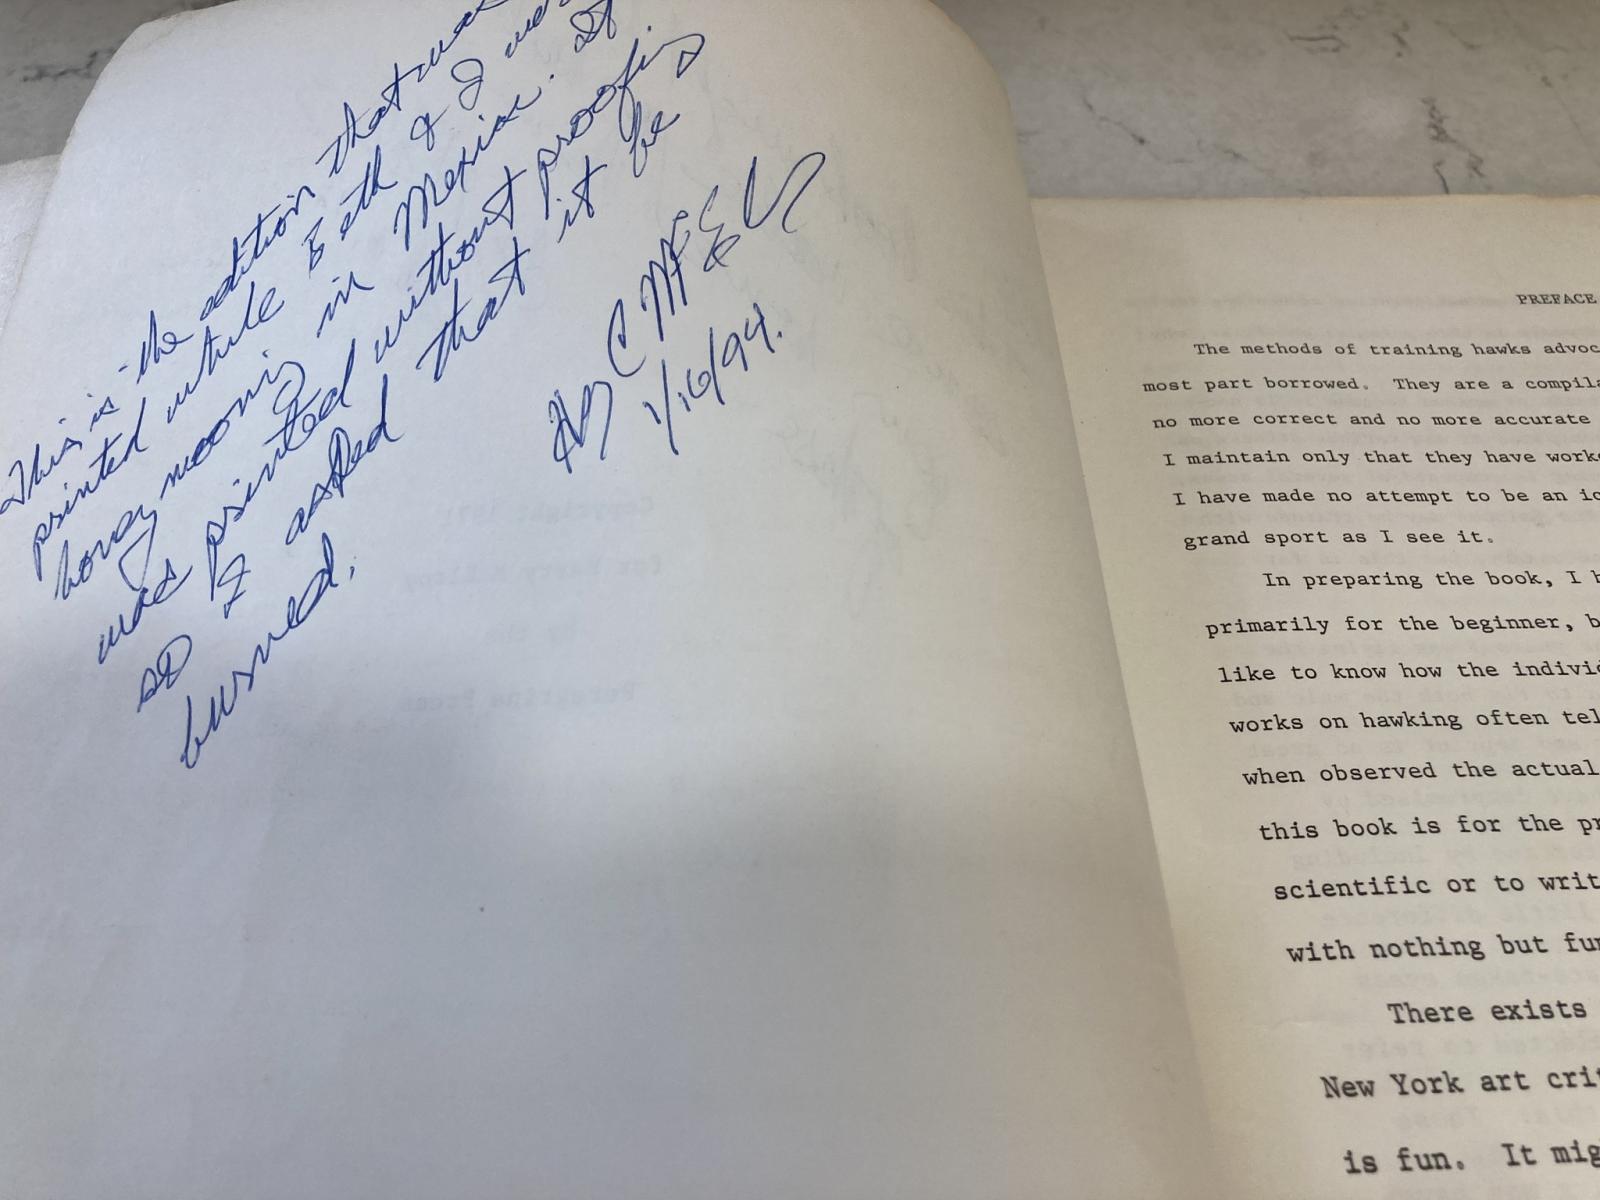 This is the edition that was
printed while Beth & I were
honey mooning in Mexico. It
was printed without proofing
so I asked that it be
burned.
1/16/94.
PREFACE
The methods of training hawks advoc
most part borrowed. They are a compila
no more correct and no more accurate
I maintain only that they have work
I have made no attempt to be an
grand sport as I see it.
In preparing the book, I
primarily for the beginner, b
like to know how the individ
works on hawking often tel
when observed the actual
this book is for the pr
scientific or to writ
with nothing but fun
There exists
New York art crit
is fun. It mig